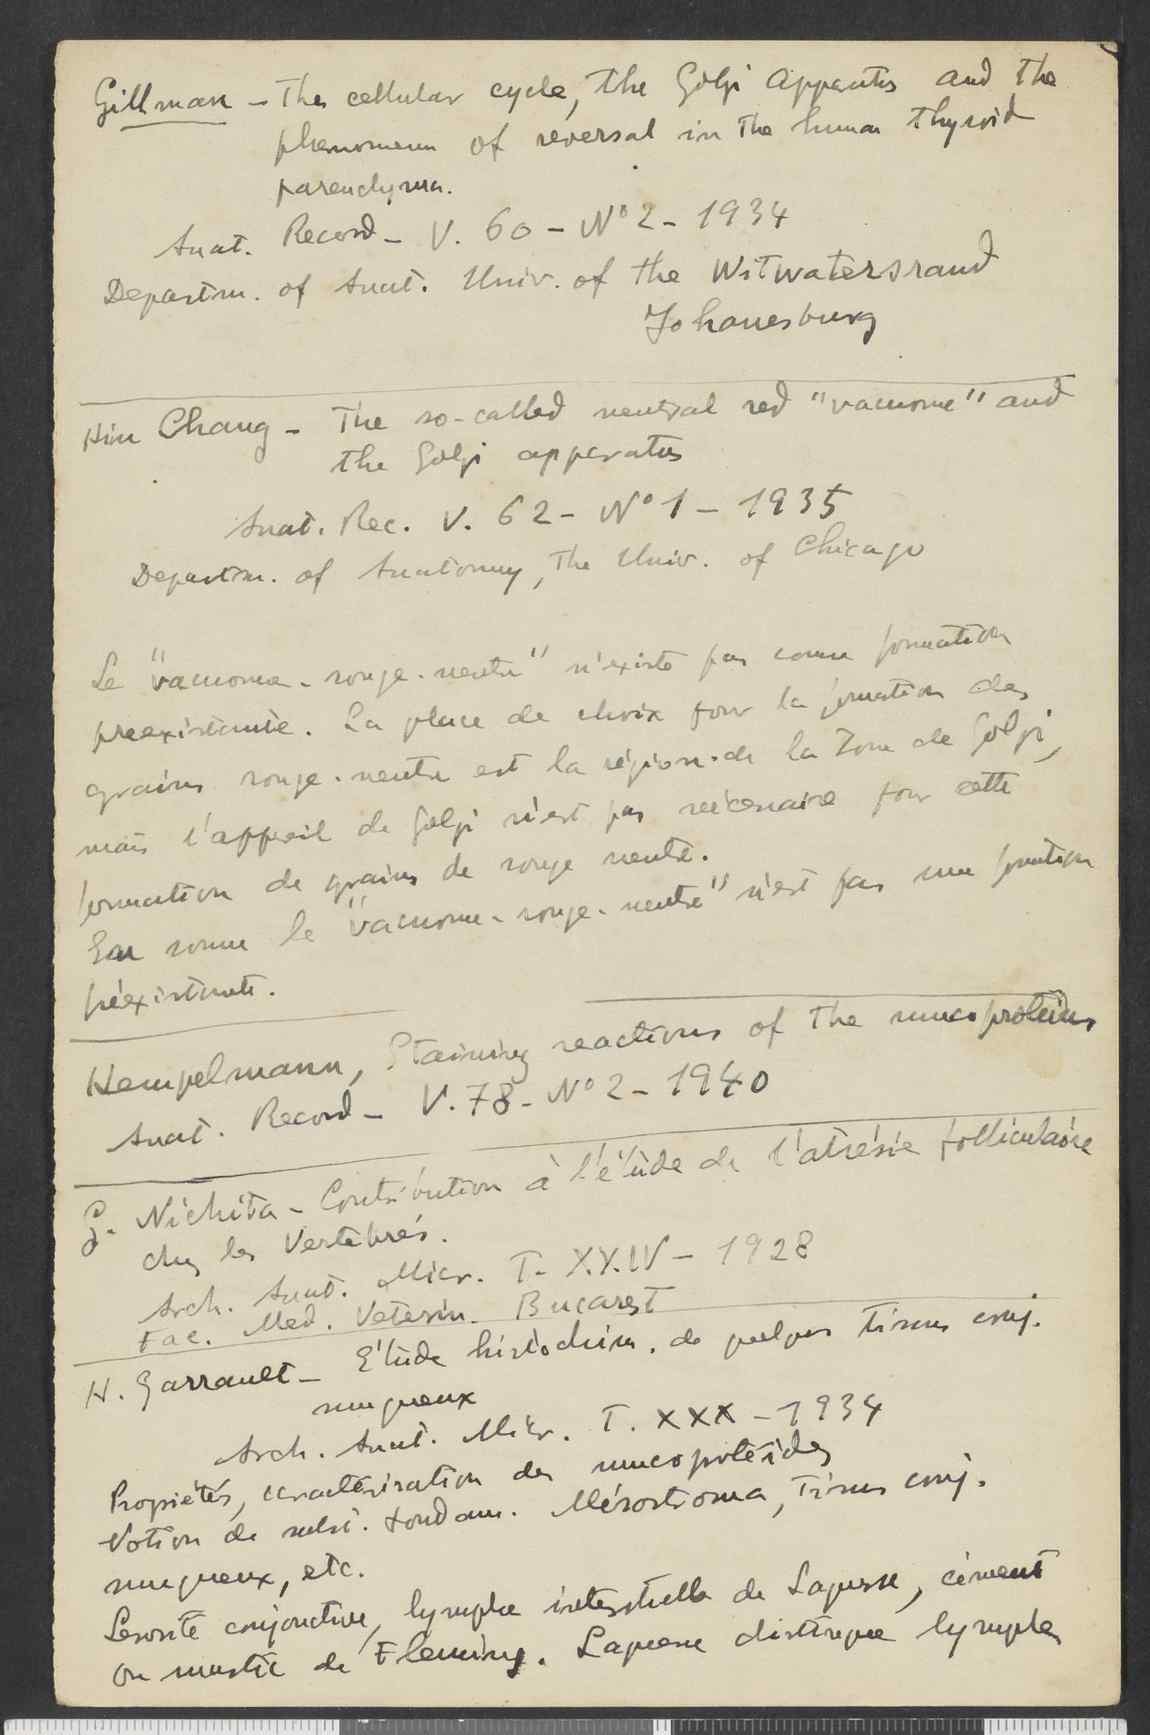 Gillman - The cellular cycle, the Golgi apparatus and the
phenomenon of reversal in the human thyroid
parenchyma.
Anat. Record - V. 60 - Nº 2 - 1934
Departm. of Anat. Univ. of the Witwatersrand
Johanesburg
Hin Chang - The so-called neutral red "vacuome" and
the Golgi apparatus
Anat. Rec. V. 62 - Nº 1 - 1935
Departm. of Anatomy, The Univ. of Chicago
Le "vacuome - rouge - neutre" n'existe pas comme formation
preexistante. La place de choix pour la formation des
grains rouge - neutre est la région de la zone de Golgi,
mais l'appareil de Golgi n'est pas nécessaire pour cette
formation de grains de rouge neutre.
En somme le "vacuome - rouge - neutre" n'est pas une formation
préexistante.
Hempelmann, Staining reactions of the mucoproteins
Anat. Record - V. 78 - Nº 2 - 1940
G. Nichita - Contribution à l'étude de l'atrésie folliculaire
chez les Vertébrés.
Arch. Anat. Micr. T. XXIV - 1928
Fac. Med. Veterin. Bucarest
H. Garrault - Etude histochim. de quelques tissus conj.
muqueux
Arch. Anat. Micr. T. XXX - 1934
Propriétés, caractérisation des mucoprotéides
Notion de subst. fondam. Mésostroma, Tissus conj.
muqueux, etc.
conjonctive, lymphe interstitielle de Laguesse, ciment
ou mastic de Fleming. Laguesse distingue lymphe